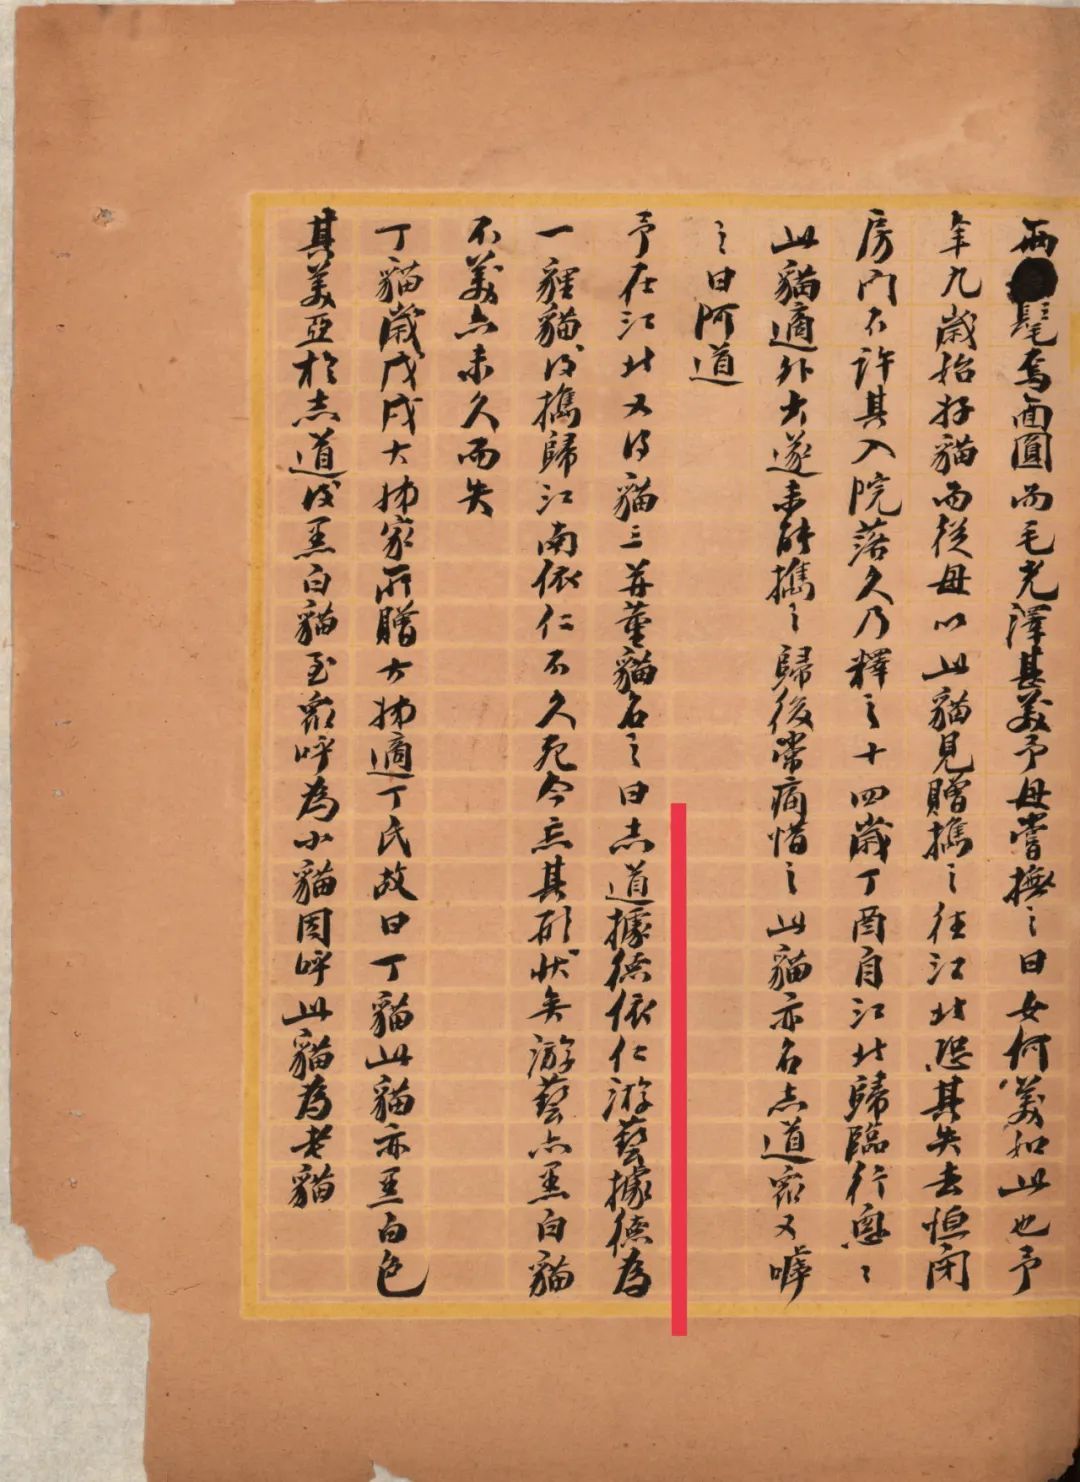 兩髦焉面圓而毛光澤甚美予母嘗撫之曰女何美如此也予
年九歲始好貓而從母以此貓見贈攜之往江北恐其失去恒閉
房門不許其入院落久乃釋之十四歲丁酉自江北歸臨行怱〻
此貓適外去遂未能攜之歸後常痛惜之此貓亦名志道家又嘑
之曰阿道
予在江北又得貓三并董貓名之曰志道據德依仁游藝據德為
一貍貓後攜歸江南依仁不久死今忘其形狀矣游藝亦黑白貓
不美亦未久而失
丁貓歲戊戌大姊家所贈大姊適丁氏故曰丁貓此貓亦黑白色
其美亞於志道後黑白貓至家呼為小貓因呼此貓為老貓